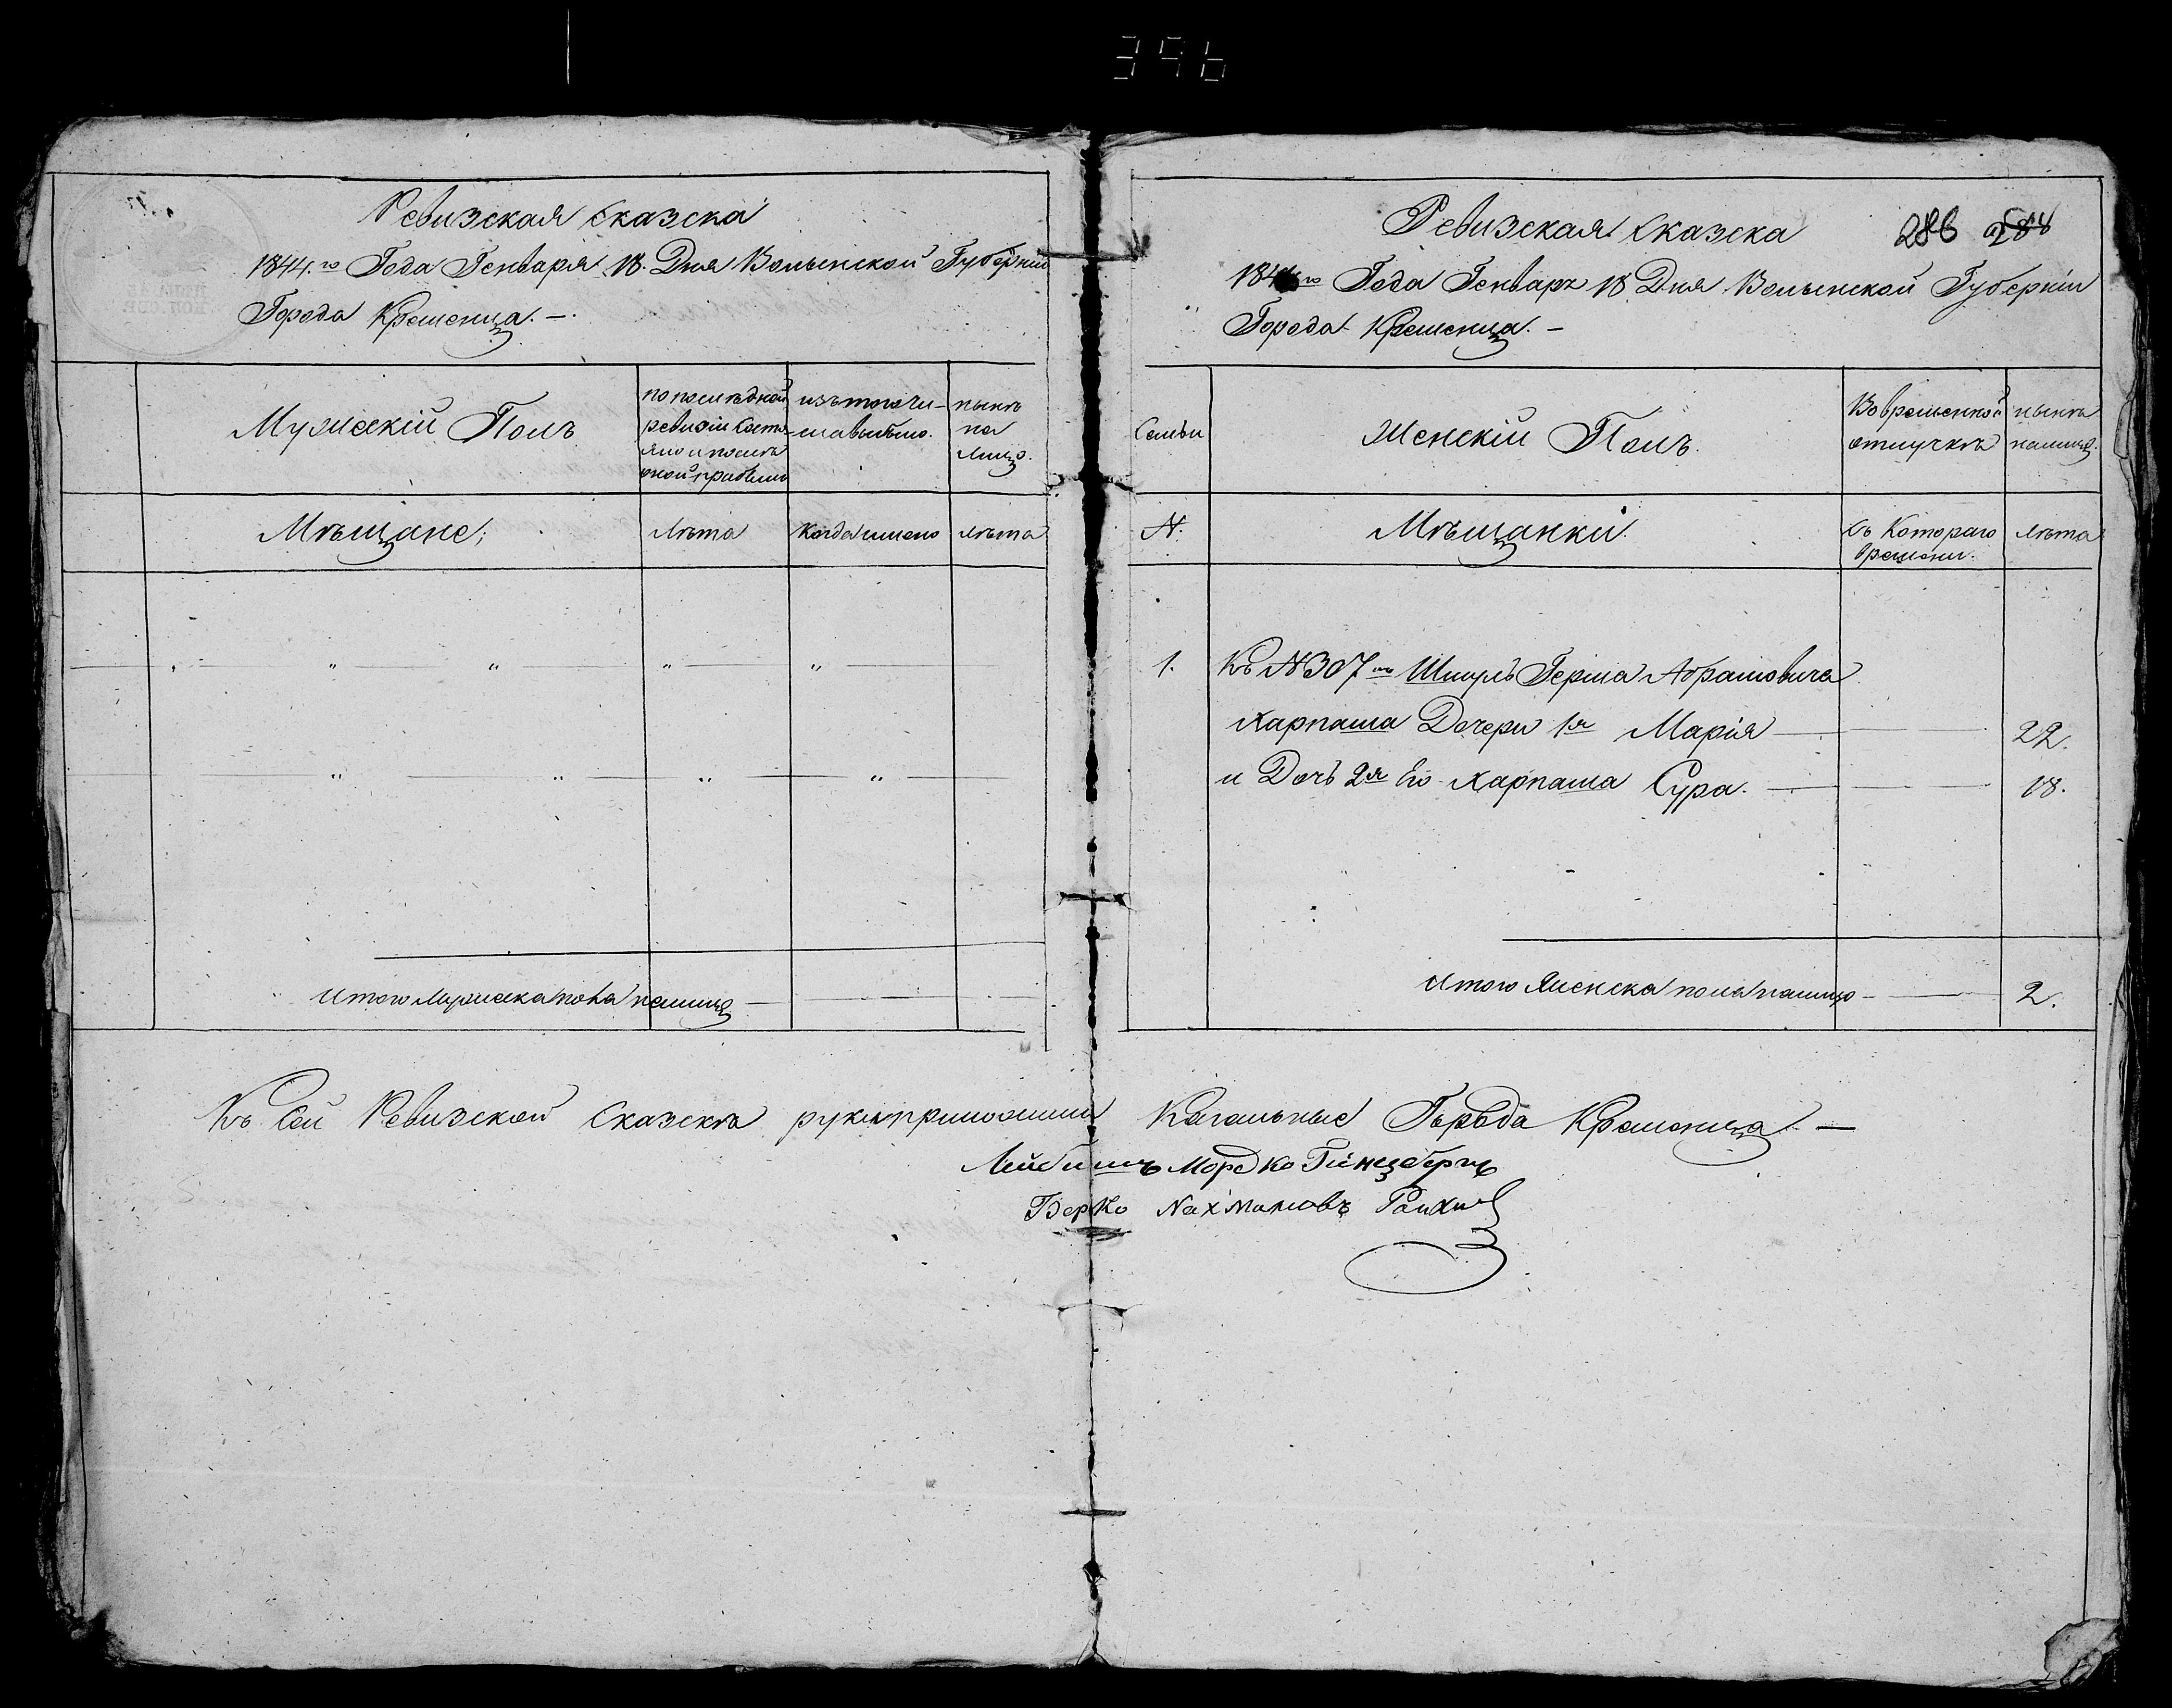 396
Ревизская Сказска
1844.го Года Генваря 18. Дня Волынской Губерніи
Города Кременца. —
Мужескій Полъ
по последней ревизіи состояло и после оной прибыло
изътого числа выбыло.
нынѣ на лицо.
Мѣщане;
Лѣта
Когда имено
лѣта
Итого Мужеска пола налицо —
Ревизская Сказска
286 284
184 го Года Генвара 18 Дня Волынской Губерніи
Города Кременца. —
Семьи
Женскій Полъ.
Во временной отлучкѣ
нынѣ налицо.
N.
Мѣщанки.
Съ Котораго времени.
лѣта
1. Къ N 307му Шмуль Герша Абрамовича
Харпаша Дочери 1я Марія — 22.
и Дочь 2я Его Харпаша Сура. — 18.
Итого Женска пола налицо — 2.
Къ Сей Ревизской Сказскѣ рукуприложили Кагальные Города Кременца —
Лейбишъ Мордко Гінцбергъ
Берко Нахмановъ